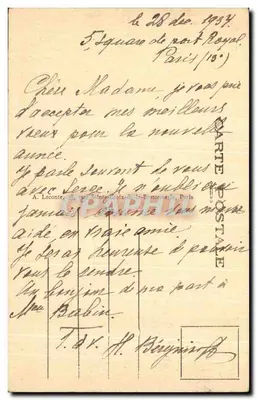 le 28 dec. 1934
5, square de port Royal.
Paris (13e)
Chère Madame, je vous prie
d'accepter mes meilleurs
vœux pour la nouvelle
année.
Je parle souvent de vous
avec Serge. Je n'oublierai
jamais
aide en vraie amie
Je serai heureuse de pouvoir
vous le rendre
Un bonjour de ma part à
Mme Babin.
T. à v. H.
CARTE POSTALE
A. Leconte